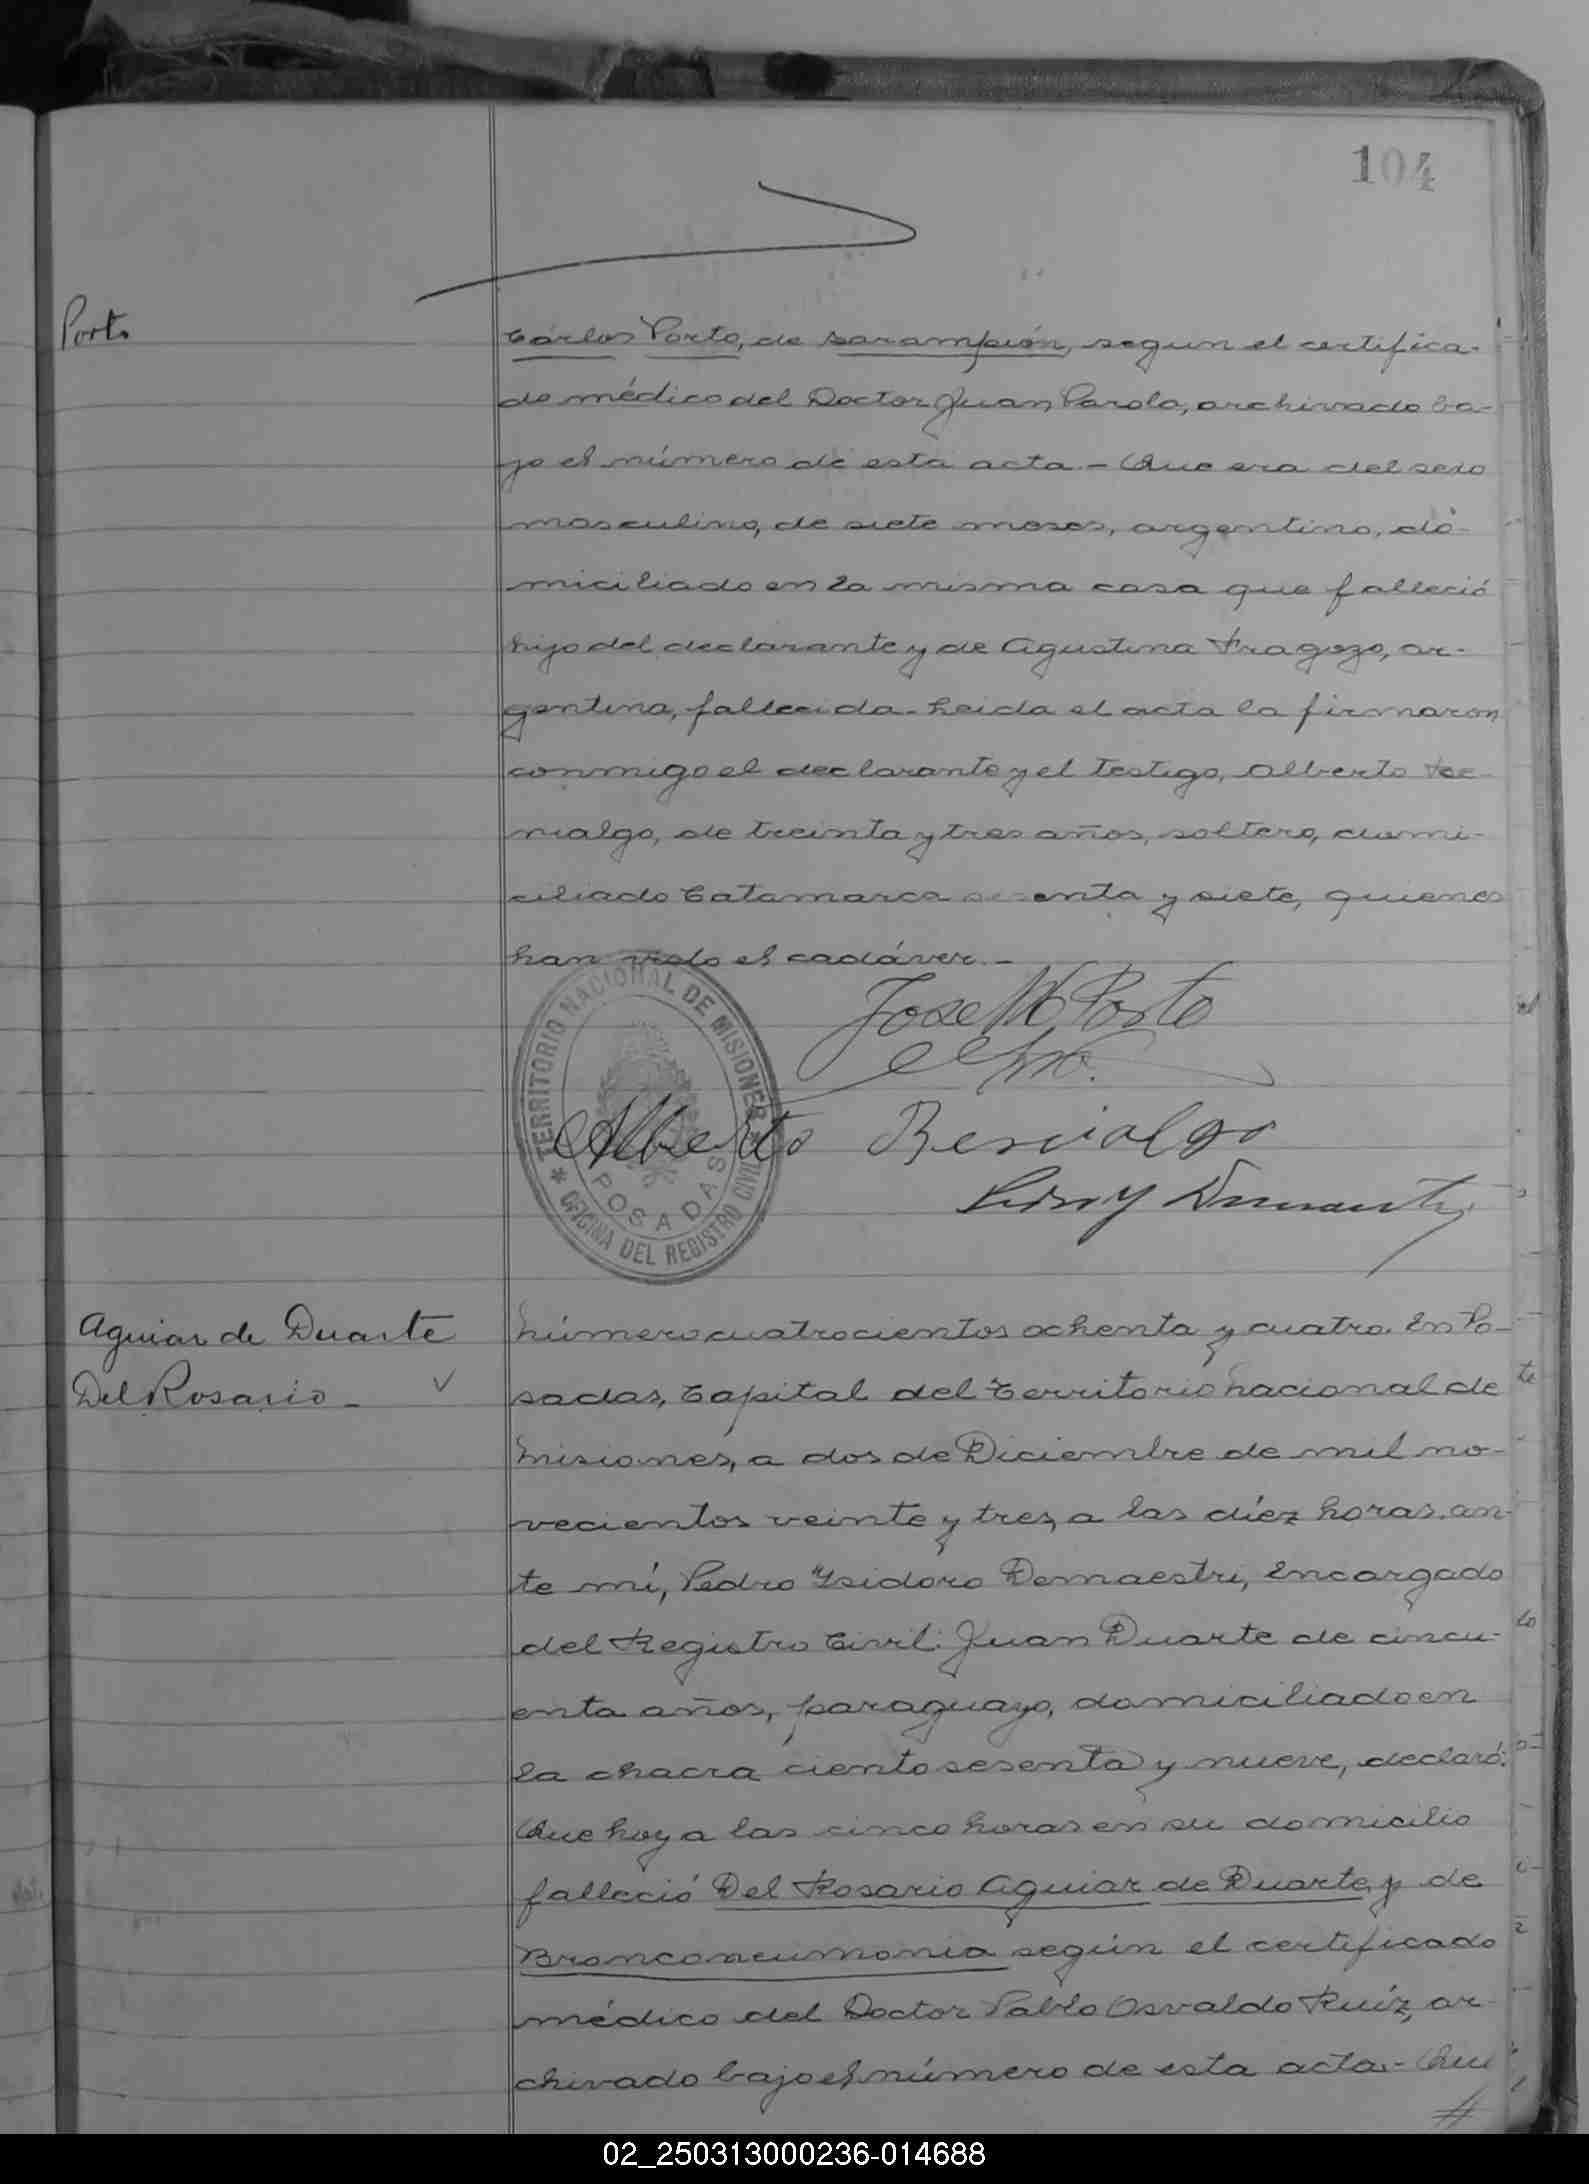 104
Porto
Cárlos Porto, de sarampión, segun el certifica-
do médico del Doctor Juan Parola, archivado ba-
jo el número de esta acta.- Que era del sexo
masculino, de siete meses, argentino, do-
miciliado en la misma casa que falleció
hijo del declarante y de Agustina Fragozo, ar-
gentina, fallecida. Leida el acta la firmaron
conmigo el declarante y el testigo, Alberto
nialgo, de treinta y tres años, soltero, domi-
ciliado Catamarca y siete, quienes
han visto el cadáver.-
TERRITORIO NACIONAL DE MISIONES
POSADAS
OFICINA DEL REGISTRO CIVIL
Jose M Porto
Alberto
Pedro Y Demaestri
Aguiar de Duarte
Del Rosario -
Número cuatrocientos ochenta y cuatro. En Po-
sadas, Capital del Territorio Nacional de
Misiones, a dos de Diciembre de mil no-
vecientos veinte y tres, a las diéz horas, an-
te mí, Pedro Ysidoro Demaestri, Encargado
del Registro Civil: Juan Duarte de cincu-
enta años, paraguayo, domiciliado en
la chacra ciento sesenta y nueve, declaró:
Que hoy a las cinco horas en su domicilio
falleció Del Rosario Aguiar de Duarte, y de
Bronconeumonia según el certificado
médico del Doctor Pablo Osvaldo Ruíz, ar-
chivado bajo el número de esta acta.- Que
//
02_250313000236-014688